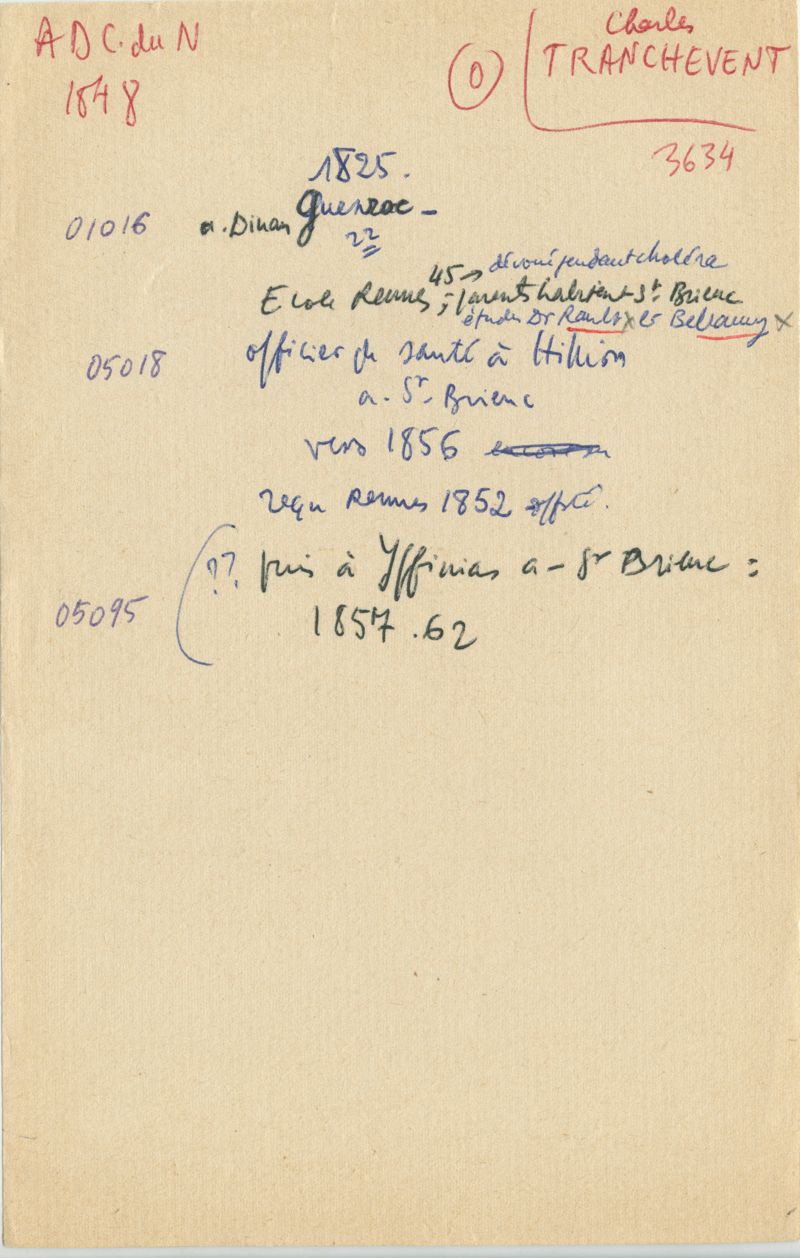 A D C. du N
1848
O
Charles
TRANCHEVENT
3634
1825.
01016 a. Dinan Guenroc -
22
45 → dévoué pendant choléra
Ecole Rennes ; parents habient St. Brieuc
études Dr x et Bellamy x
05018 officier de santé à Hillion
a. St. Brieuc
vers 1856
reçu Rennes 1852
?? puis à Yffiniac a - St Brieuc =
05095 1857.62